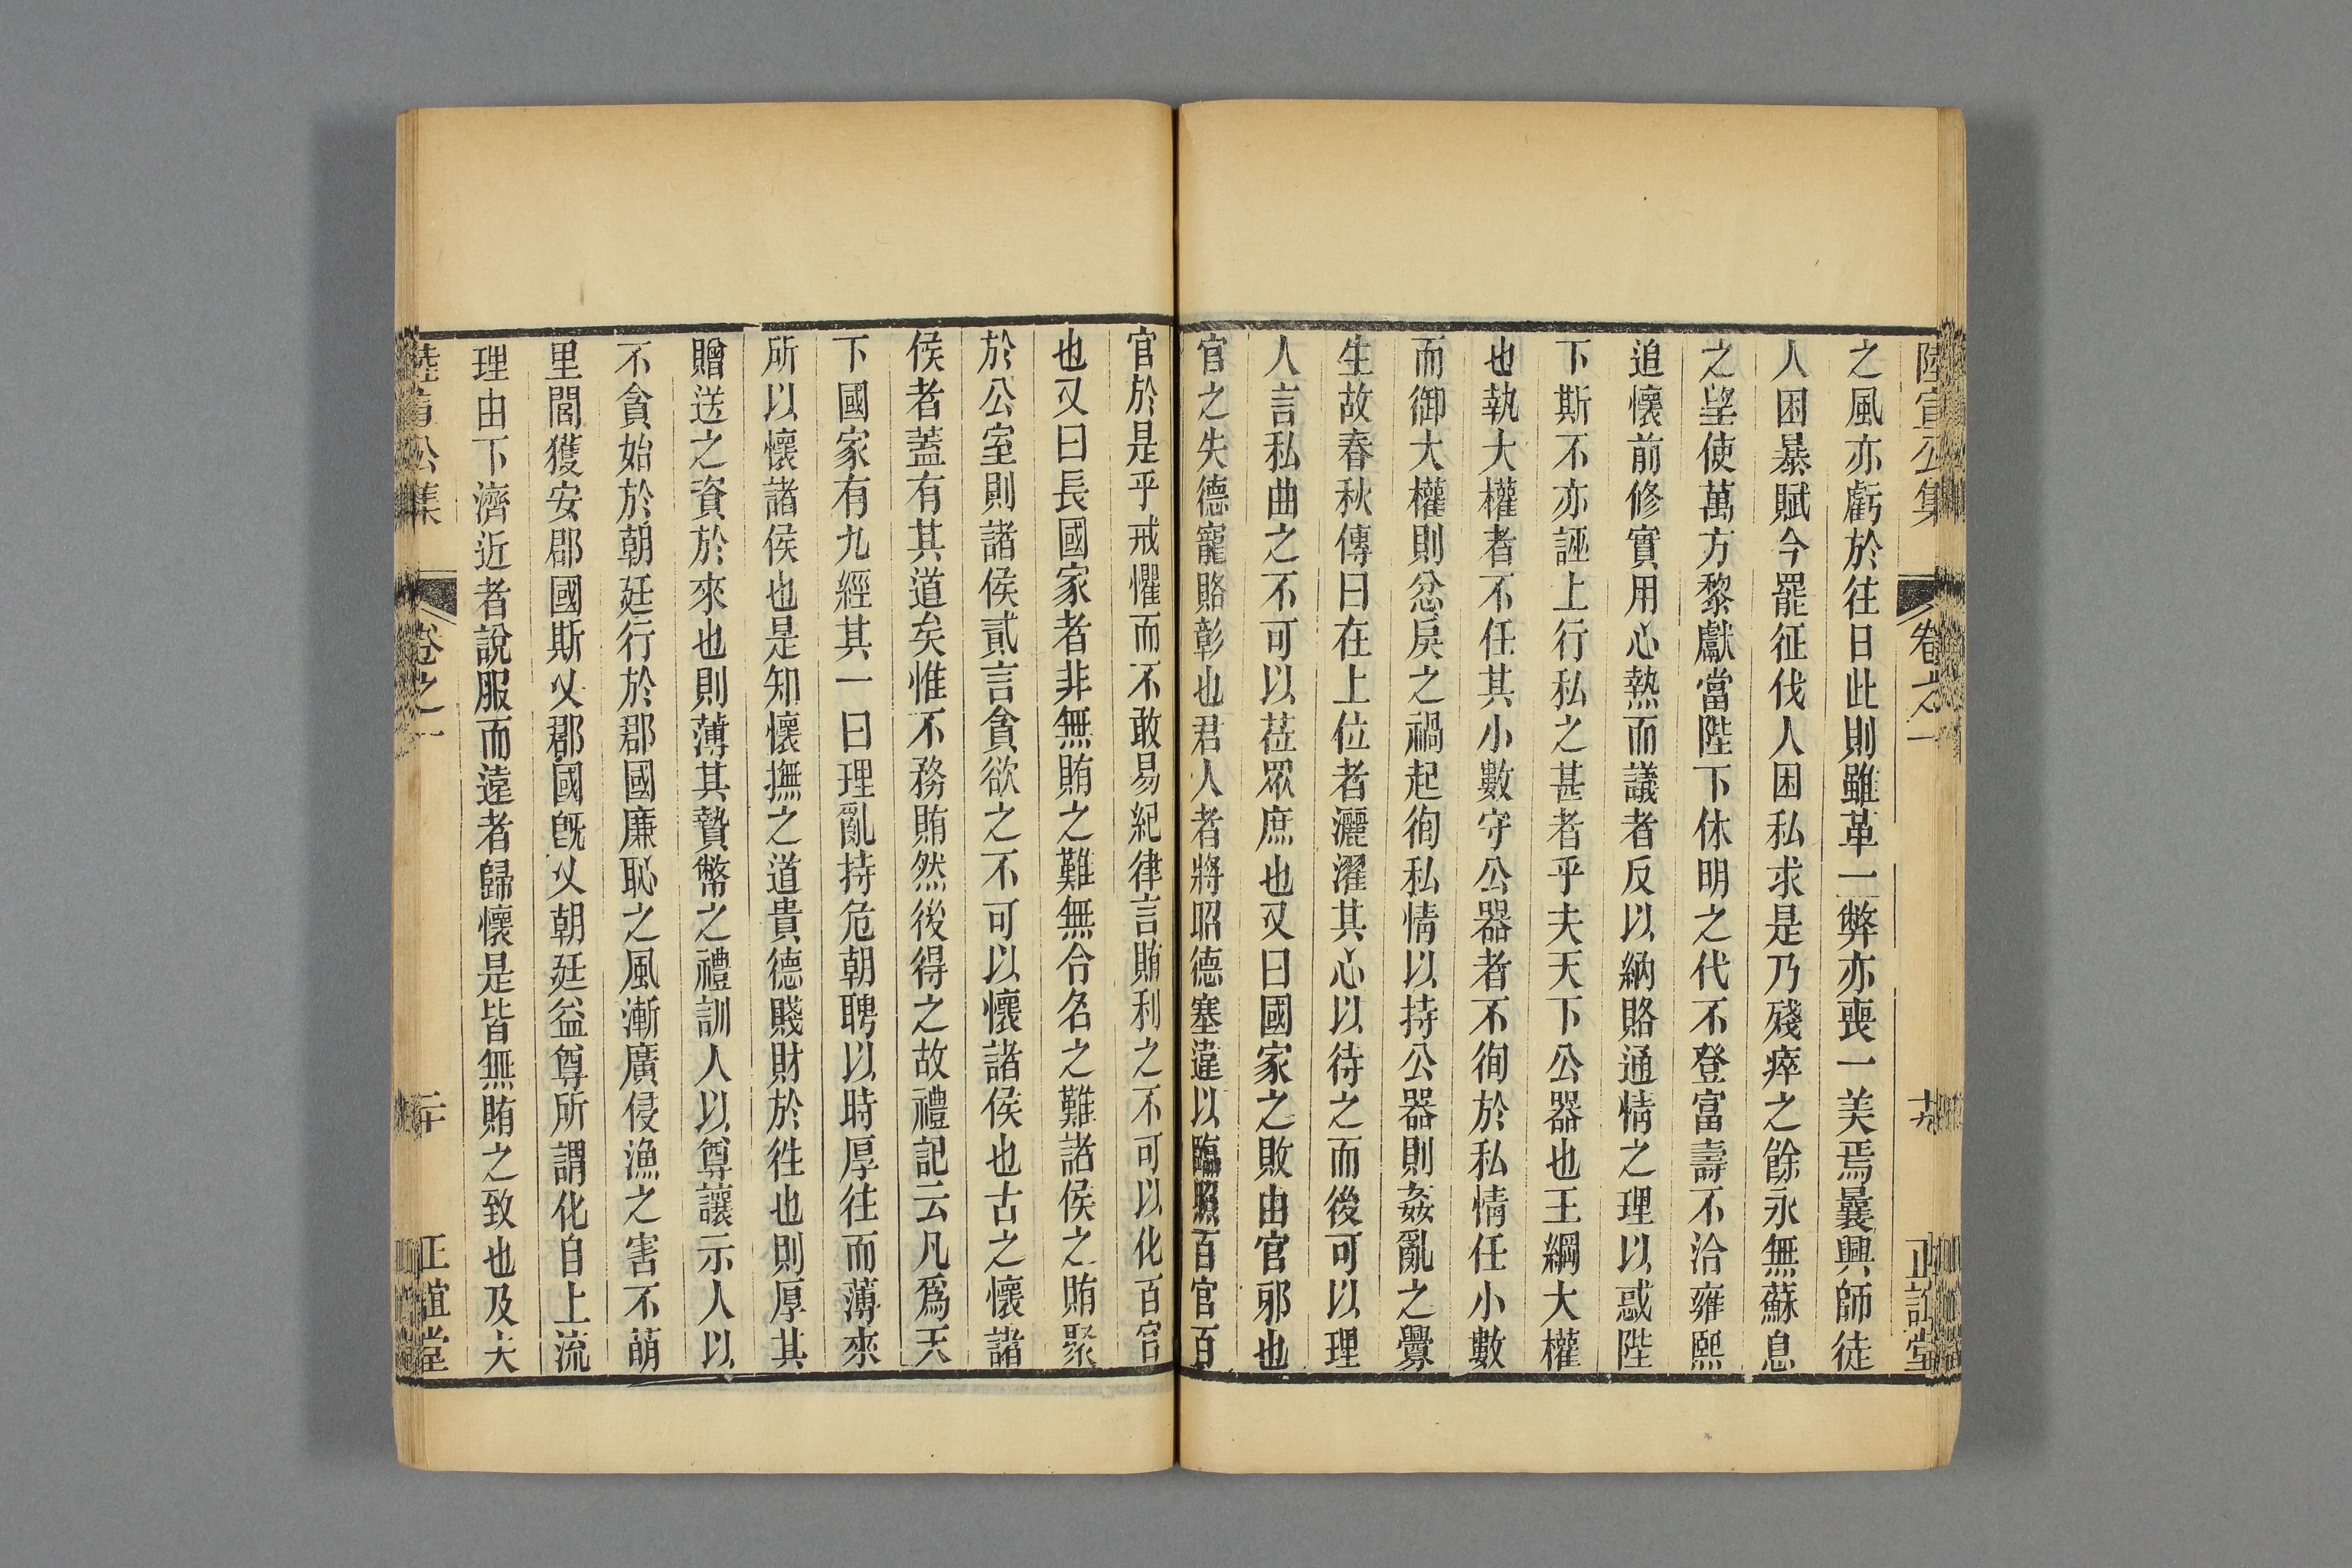 陸宣公集 卷之一 十九 正誼堂
之風亦虧於往日此則雖革一弊亦喪一美焉曩興師徒
人困暴賦今罷征伐人困私求是乃殘瘁之餘永無蘇息
之望使萬方黎獻當陛下休明之代不登富壽不洽雍熙
追懷前修實用心熱而議者反以納賂通情之理以惑陛
下斯不亦誣上行私之甚者乎夫天下公器也王綱大權
也執大權者不任其小數守公器者不徇於私情任小數
而御大權則忿戾之禍起徇私情以持公器則姦亂之釁
生故春秋傳曰在上位者灑濯其心以待之而後可以理
人言私曲之不可以莅眾庶也又曰國家之敗由官邪也
官之失德寵賂彰也君人者將昭德塞違以臨照百官百
官於是乎戒懼而不敢易紀律言賄利之不可以化百官
也又曰長國家者非無賄之難無令名之難諸侯之賄聚
於公室則諸侯貳言貪欲之不可以懷諸侯也古之懷諸
侯者蓋有其道矣惟不務賄然後得之故禮記云凡爲天
下國家有九經其一曰理亂持危朝聘以時厚往而薄來
所以懷諸侯也是知懷撫之道貴德賤財於徃也則厚其
贈送之資於來也則薄其贄幣之禮訓人以尊讓示人以
不貪始於朝廷行於郡國廉恥之風漸廣侵漁之害不萌
里閭獲安郡國斯乂郡國旣乂朝廷益尊所謂化自上流
理由下濟近者說服而遠者歸懷是皆無賄之致也及夫
陸宣公集 卷之一 二十 正誼堂